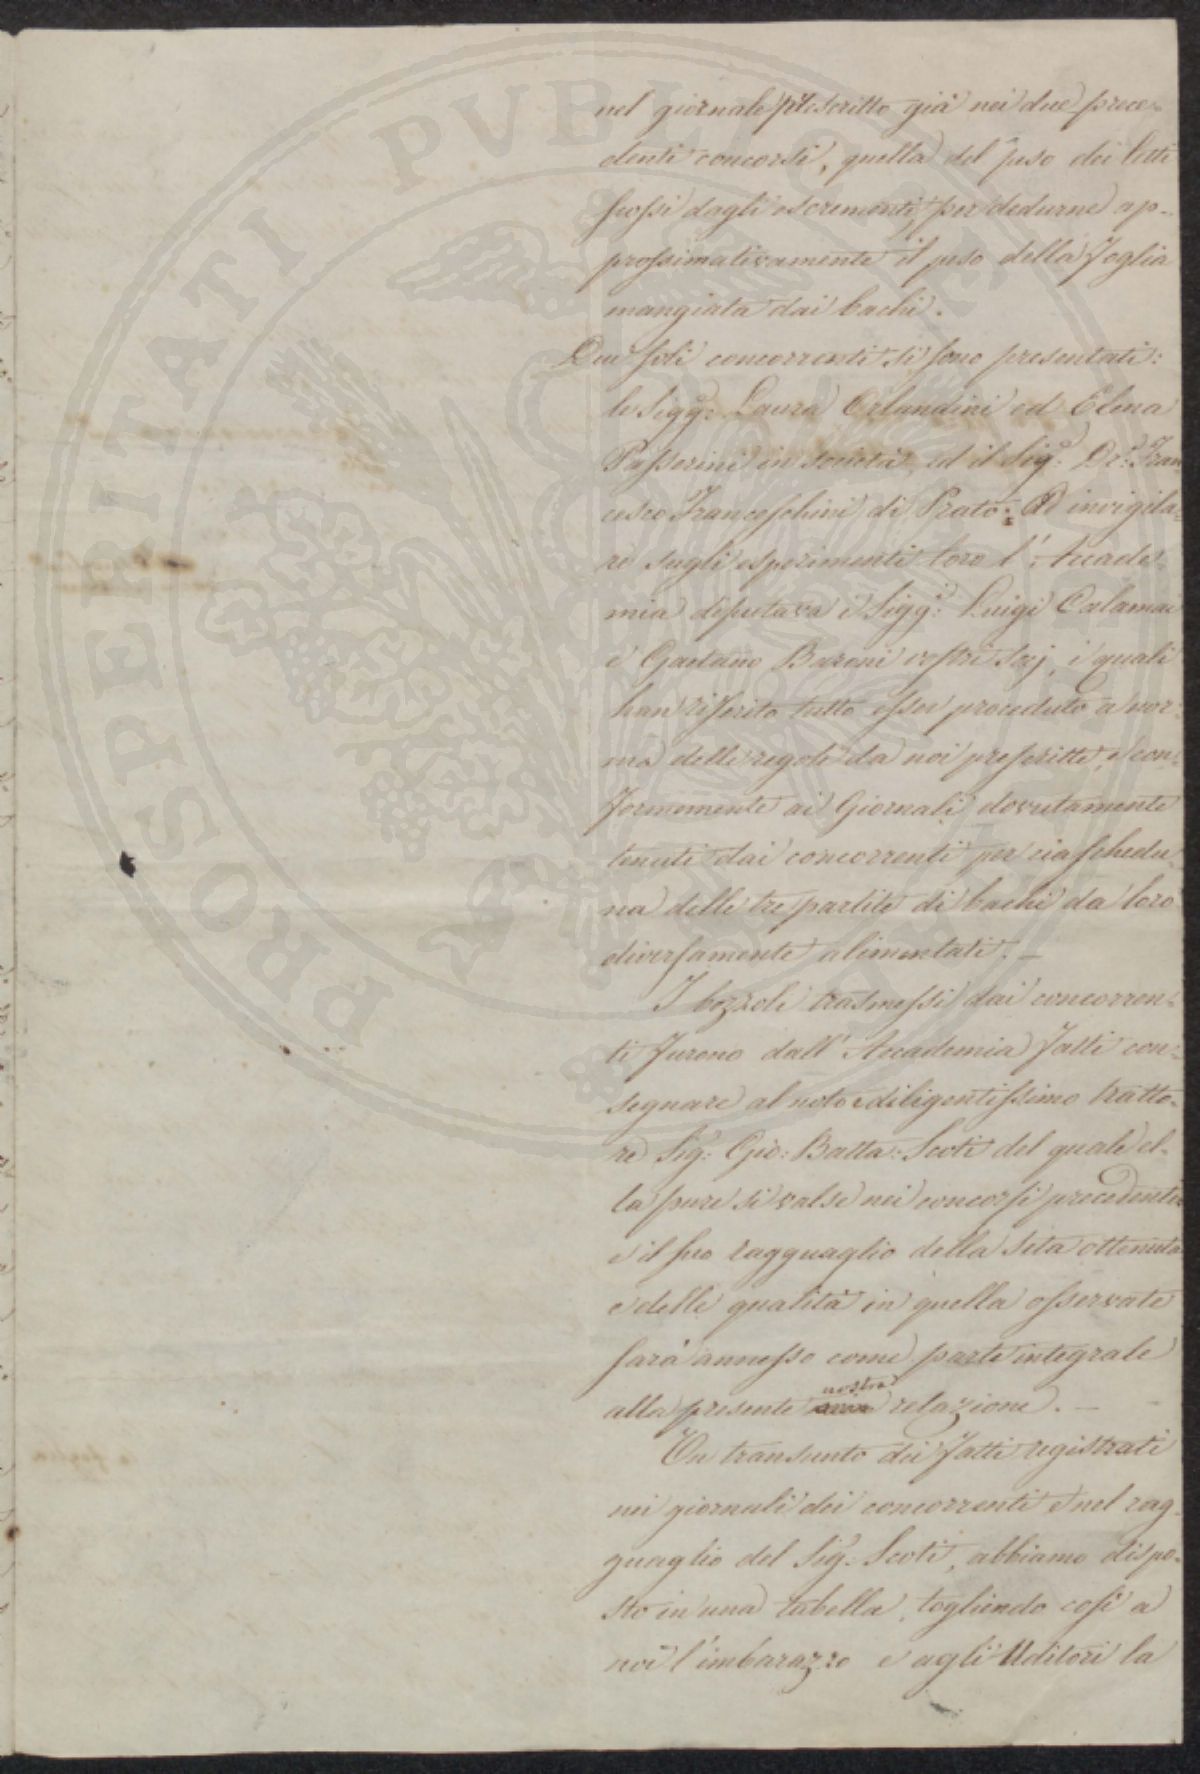 nel giornale prescritto già nei due prece-
denti concorsi, quella del peso dei letti
scossi dagli escrementi, per dedurne ap-
prossimativamente il peso della foglia
mangiata dai bachi.
Due soli concorrenti si sono presentati:
le Sigg.e Laura Orlandini ed Elena
Passerini in società, ed il Sig.e Dr. Fran
cesco Franceschini di Prato: Ad invigila-
re sugli esperimenti loro l'Accade-
mia deputava i Sigg.i Luigi Calamai
e Gaetano Baroni vostri socj, i quali
han riferito tutto esser proceduto a nor-
ma delle regole da noi prescritte, e con-
formemente ai Giornali dovutamente
tenuti dai concorrenti per ciaschedu-
na delle tre partite di bachi da loro
diversamente alimentati. —
I bozzoli trasmessi dai concorren-
ti furono dall'Accademia fatti con-
segnare al noto e diligentissimo tratto-
re Sig.r Gio: Batta: Scoti del quale el-
la pure si valse nei concorsi precedenti
e il suo ragguaglio della seta ottenuta
e delle qualità in quella osservate
sarà annesso come parte integrale
alla presente nostra relazione. —
Un transunto dei fatti registrati
nei giornali dei concorrenti e nel rag-
guaglio del Sig.r Scoti, abbiamo dispo-
sto in una tabella, togliendo così a
noi l'imbarazzo e agli Uditori la
PROSPERITATI PVBLICAE